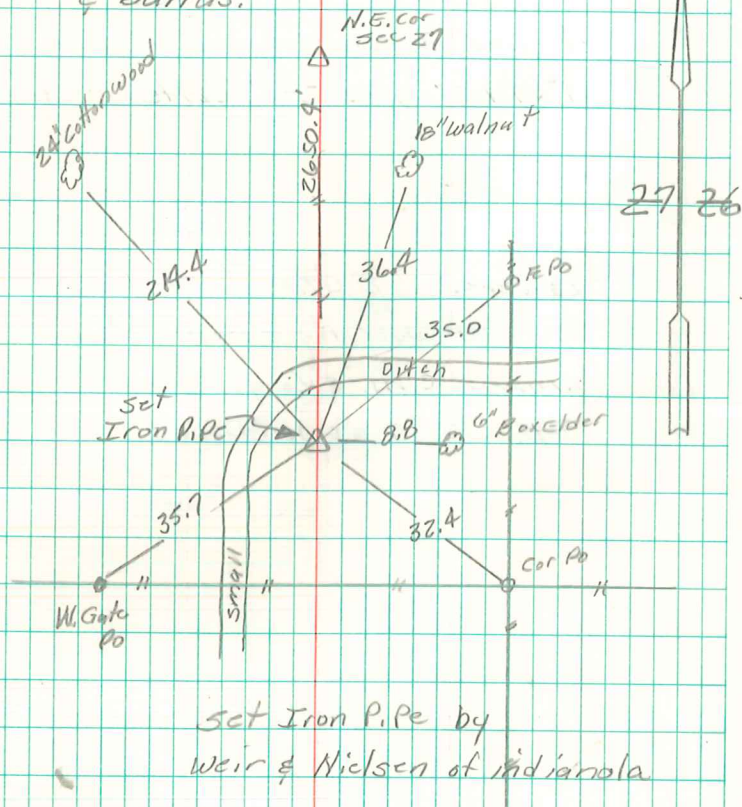 & Burrus.
N.E. Cor
Sec 27
24" Cottonwood
2650.4'
18" Walnut
27 26
214.4
36.4
FE Po
35.0
Ditch
set
Iron Pipe
8.8
6" Box Elder
35.7
32.4
small
Cor Po
W. Gate
Po
set Iron Pipe by
Weir & Nielsen of indianola